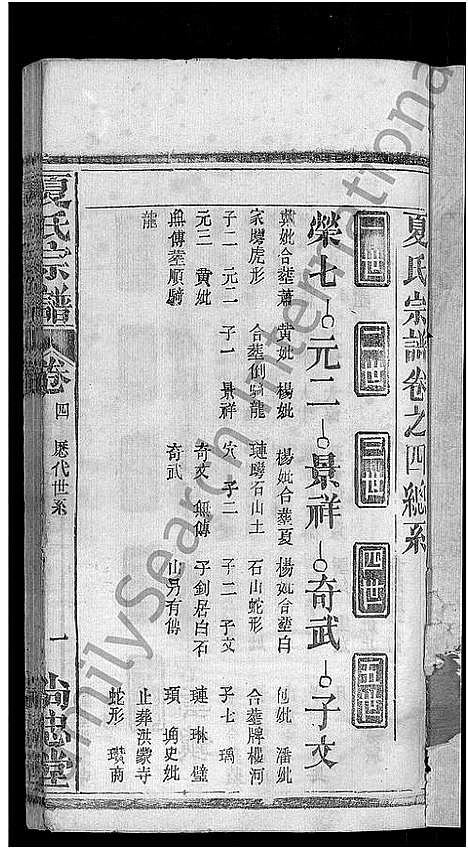 夏氏宗譜卷之四總系
一世 二世 三世 四世 五世
榮七 元二 景祥 奇武 子文
與妣合塟蕭 黄妣 楊妣 楊妣合塟夏 楊妣合塟白 包妣 潘妣
家塆虎形 合塟倒騎龍 塘塆石山土 石山蛇形 合塟牌樓河
子二 元二 子一 景祥 穴 子二 子二 子文 子七 瑀
元三 黄妣 奇文 無傳 子釗居白石 璉 琳 璧
無傳塟順騎 奇武 山另有傳 頊 史妣
龍 止葬洪蒙寺
蛇形 瓚商
夏氏宗譜 卷四 歷代世系 一 尚忠堂
FamilySearch International